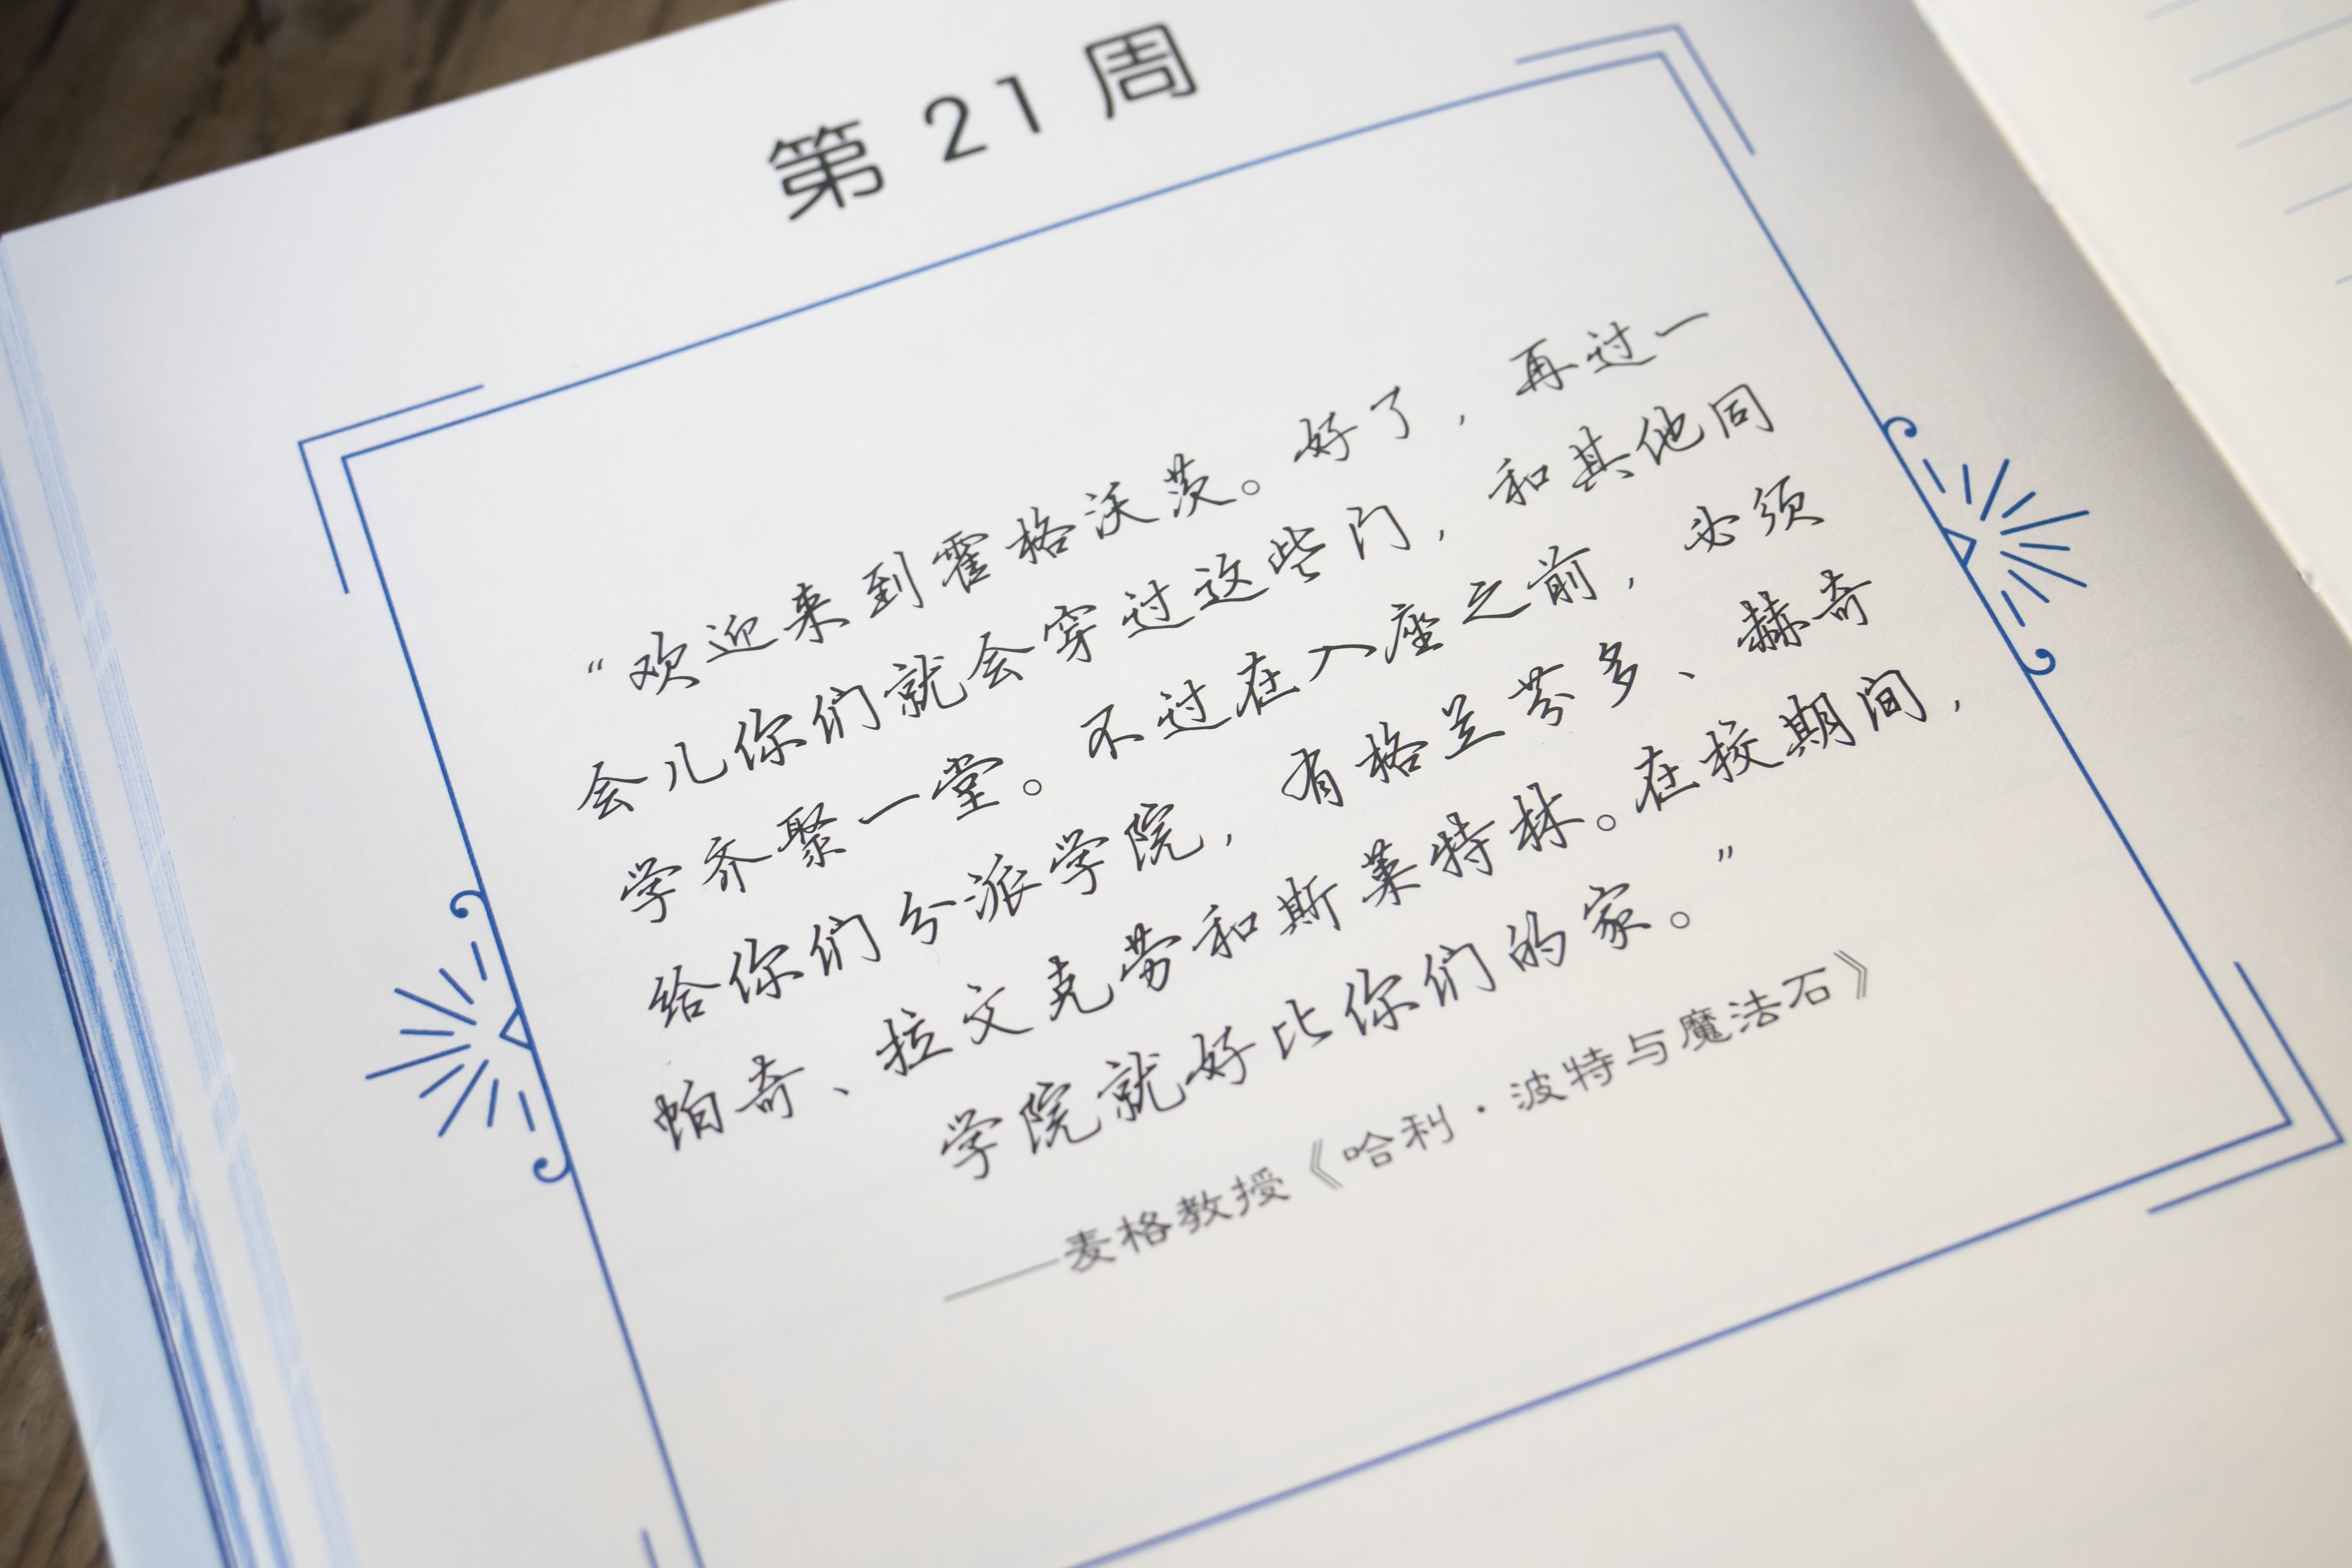 第21周
“欢迎来到霍格沃茨。好了，再过一
会儿你们就会穿过这些门，和其他同
学齐聚一堂。不过在入座之前，必须
给你们分派学院，有格兰芬多、赫奇
帕奇、拉文克劳和斯莱特林。在校期间，
学院就好比你们的家。”
——麦格教授《哈利·波特与魔法石》